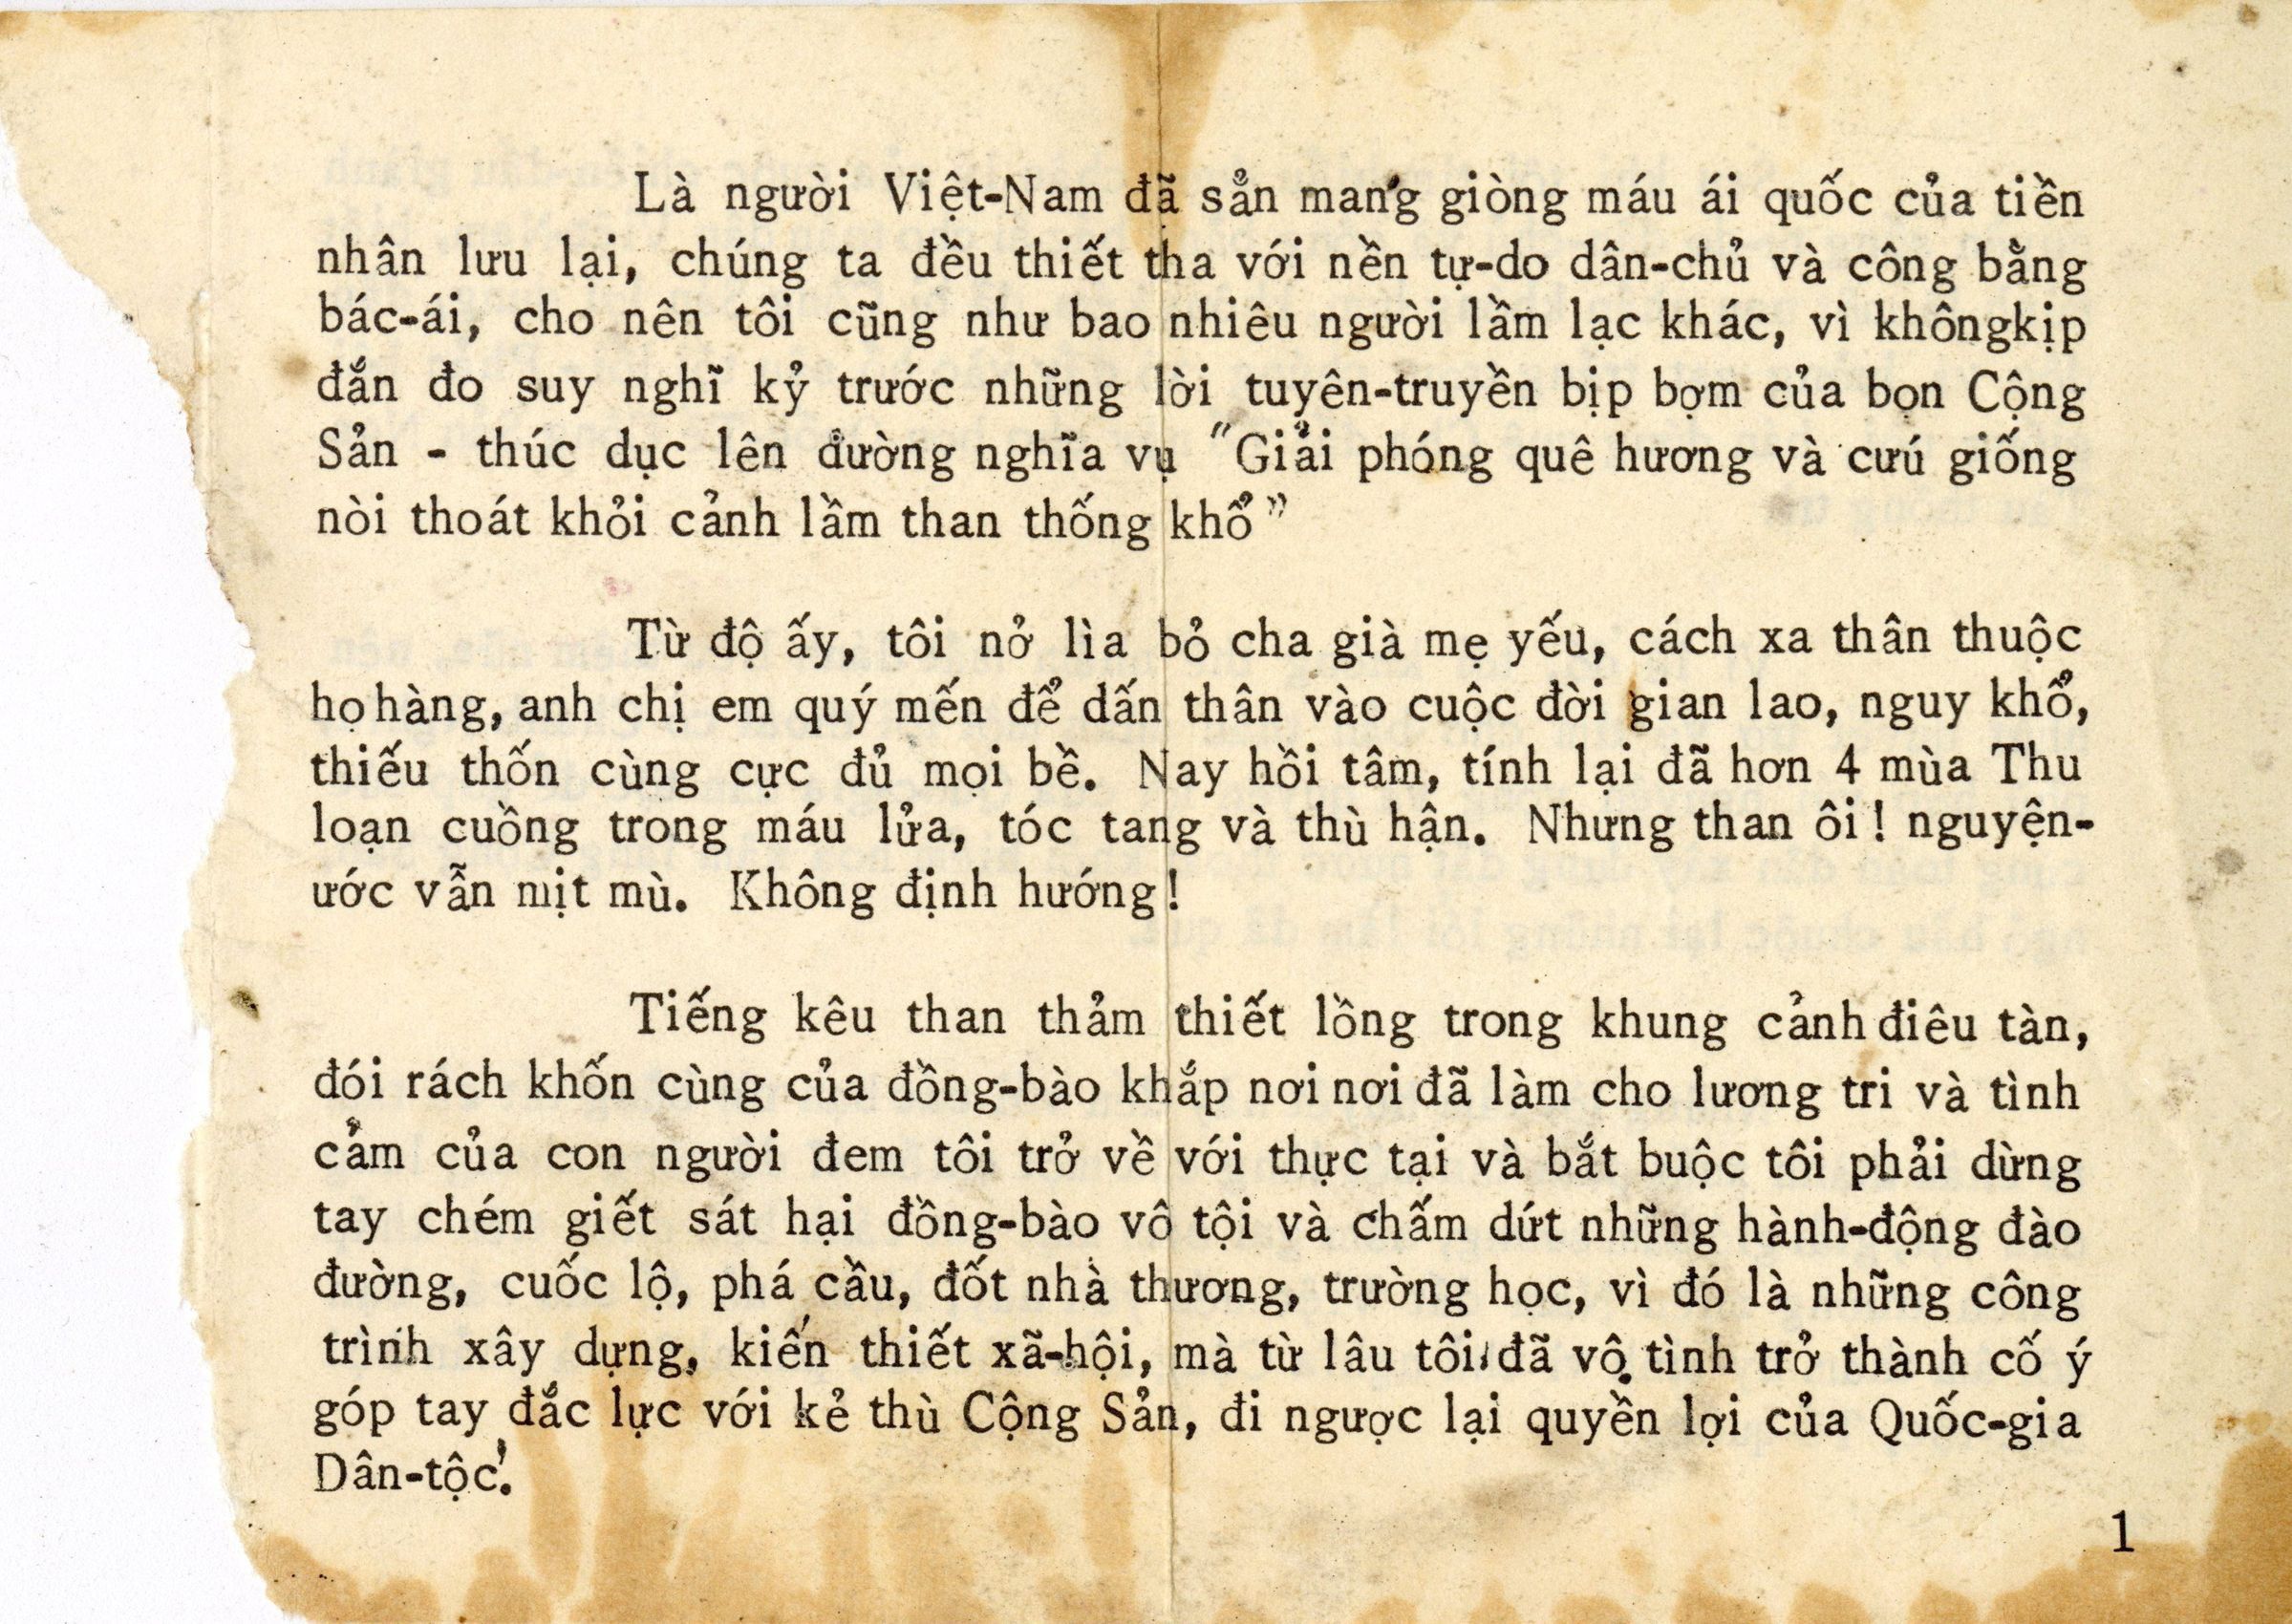 Là người Việt-Nam đã sẳn mang giòng máu ái quốc của tiền
nhân lưu lại, chúng ta đều thiết tha với nền tự-do dân-chủ và công bằng
bác-ái, cho nên tôi cũng như bao nhiêu người lầm lạc khác, vì khôngkịp
đắn đo suy nghĩ kỷ trước những lời tuyên-truyền bịp bợm của bọn Cộng
Sản - thúc dục lên đường nghĩa vụ "Giải phóng quê hương và cưú giống
nòi thoát khỏi cảnh lầm than thống khổ"
Từ độ ấy, tôi nở lìa bỏ cha già mẹ yếu, cách xa thân thuộc
họ hàng, anh chị em quý mến để dấn thân vào cuộc đời gian lao, nguy khổ,
thiếu thốn cùng cực đủ mọi bề. Nay hồi tâm, tính lại đã hơn 4 mùa Thu
loạn cuồng trong máu lửa, tóc tang và thù hận. Nhưng than ôi! nguyện-
ước vẫn mịt mù. Không định hướng!
Tiếng kêu than thảm thiết lồng trong khung cảnh điêu tàn,
đói rách khốn cùng của đồng-bào khắp nơi nơi đã làm cho lương tri và tình
cảm của con người đem tôi trở về với thực tại và bắt buộc tôi phải dừng
tay chém giết sát hại đồng-bào vô tội và chấm dứt những hành-động đào
đường, cuốc lộ, phá cầu, đốt nhà thương, trường học, vì đó là những công
trình xây dựng, kiến thiết xã-hội, mà từ lâu tôi đã vô tình trở thành cố ý
góp tay đắc lực với kẻ thù Cộng Sản, đi ngược lại quyền lợi của Quốc-gia
Dân-tộc!
1